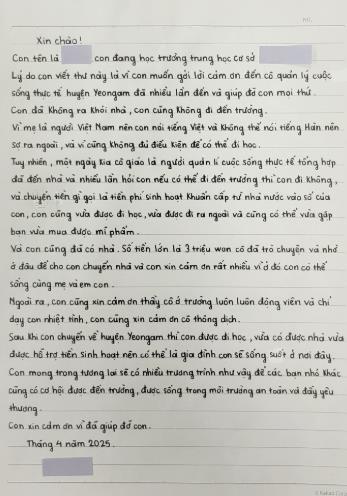 Xin chào!
Con tên là con đang học trường trung học cơ sở
Lý do con viết thư này là vì con muốn gởi lời cảm ơn đến cô quản lý cuộc
sống thực tế huyện Yeongam đã nhiều lần đến và giúp đỡ con mọi thứ.
Con đã không ra khỏi nhà, con cũng không đi đến trường.
Vì mẹ là người Việt Nam nên con nói tiếng Việt và không thể nói tiếng Hàn nên
sợ ra ngoài, và vì cũng không đủ điều kiện để có thể đi học.
Tuy nhiên, một ngày kia cô giáo là người quản lí cuộc sống thực tế tổng hợp
đã đến nhà và nhiều lần hỏi con nếu có thể đi đến trường thì con đi không,
và chuyển tiền gì gọi là tiền phí sinh hoạt khẩn cấp từ nhà nước vào sổ của
con, con cũng vừa được đi học, vừa được đi ra ngoài và cũng có thể vừa gặp
bạn vừa mua được mĩ phẩm.
Và con cũng đã có nhà. Số tiền lớn là 3 triệu won cô đã trò chuyện và nhờ
ở đâu để cho con chuyển nhà và con xin cảm ơn rất nhiều vì ở đó con có thể
sống cùng mẹ và em con.
Ngoài ra, con cũng xin cảm ơn thầy cô ở trường luôn luôn động viên và chỉ
dạy con nhiệt tình, con cũng xin cảm ơn cô thông dịch.
Sau khi con chuyển về huyện Yeongam thì con được đi học, vừa có được nhà vừa
được hỗ trợ tiền sinh hoạt nên có thể là gia đình con sẽ sống suốt ở nơi đây.
Con mong trong tương lai sẽ có nhiều trương trình như vậy để các bạn nhỏ khác
cũng có cơ hội được đến trường, được sống trong môi trường an toàn và đầy yêu
thương.
Con xin cảm ơn vì đã giúp đỡ con.
Tháng 4 năm 2025.